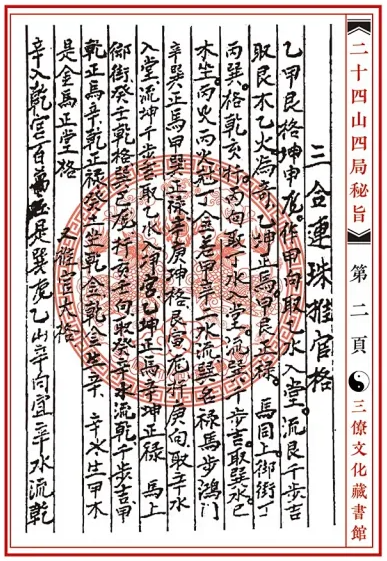 二十四山四局秘旨
第二頁
三僚文化藏書館
三合連珠推官格
乙甲艮格坤申龙。作甲向取乙水入堂。流艮千步吉
取艮木乙火。為辛乙坤正馬。甲艮正禄。馬同上御街丁
丙巽。格乾亥行。丙向取丁水入堂。流巽千步吉。取巽水巳
木坐。丙火丙火尅丁金若甲辛一水流巽名禄馬步鴻门
辛巽正馬甲巽正禄辛庚坤格艮富龙行庚向取辛水
入堂流坤千步吉取乙水入坤宮乙坤正馬辛坤正禄馬上
御街癸壬乾格巽巳龙行亥壬向取癸辛水流乾千步吉甲
乾正馬辛乾正禄癸土坐乾金乾金生辛辛水生甲木
是金馬正堂格
又推官大格
辛入乾宮百萬庄是巽龙乙山辛向宜辛水流乾